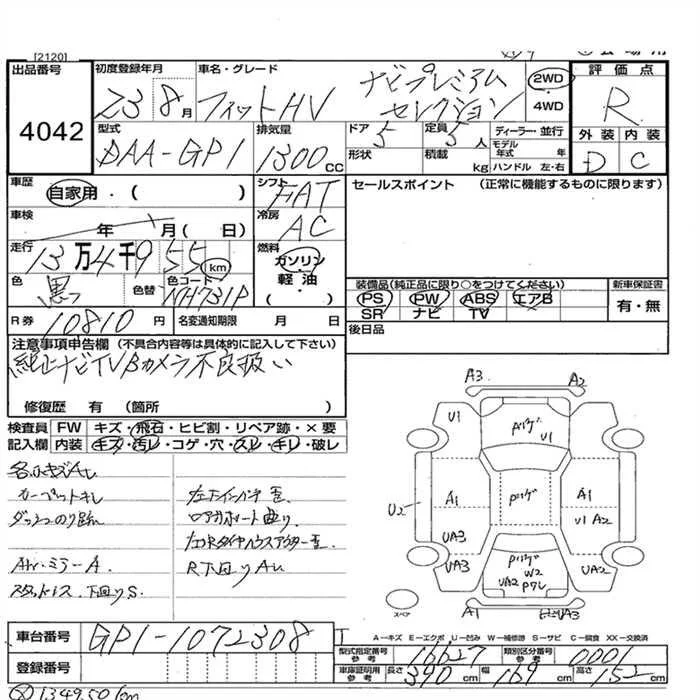 [2120]
出品番号
4042
初度登録年月
23 8月
車名・グレード
フィットHV
ナビプレミアム
セレクション
2WD
4WD
評価点
R
外装 内装
D C
型式
DAA-GP1
排気量
1300cc
ドア
5
形状
定員
5人
積載
kg
ディーラー・並行
モデル年式 年
ハンドル 左・右
車歴
自家用・( )
シフト
FAT
セールスポイント (正常に機能するものに限ります)
車検
年 月( 日)
冷房
AC
走行
13万4千955km
燃料
ガソリン
軽油
( )
色
黒
色替
色コード
NH731P
装備品(純正品に限り○をつけてください)
PS PW ABS エアB
SR ナビ TV
新車保証書
有・無
R券
10810円
名変通知期限 月 日
後日品
注意事項申告欄 (不具合内容等は具体的に記入して下さい)
純正ナビTVBカメラ不良扱い
修復歴 有 (箇所 )
検査員記入欄
FW キズ・飛石・ヒビ割・リペア跡・×要
内装 キズ・汚レ・コゲ・穴・スレ・キレ・破レ
カーペットキレ
ダッシュのり跡
ミラーA
スタットレス 下回りS
左下インパネ歪
ロアサポート曲り
R下回りAU
A3
A2
U1
パリダ
U1
U2
A1
パリダ
A1
U1 A2
UA3
UA3
パリダ
W2
UA2
UA2
A1
UA3
スペア
A-キズ E-エクボ U-凹み W-補修跡 S-サビ C-腐食 XX-交換済
車台番号
GP1-1072308
登録番号
型式指定番号 参考
16627
類別区分番号 参考
0001
車庫証明用 参考
長さ 390cm
幅 169cm
高さ 152cm
134950km